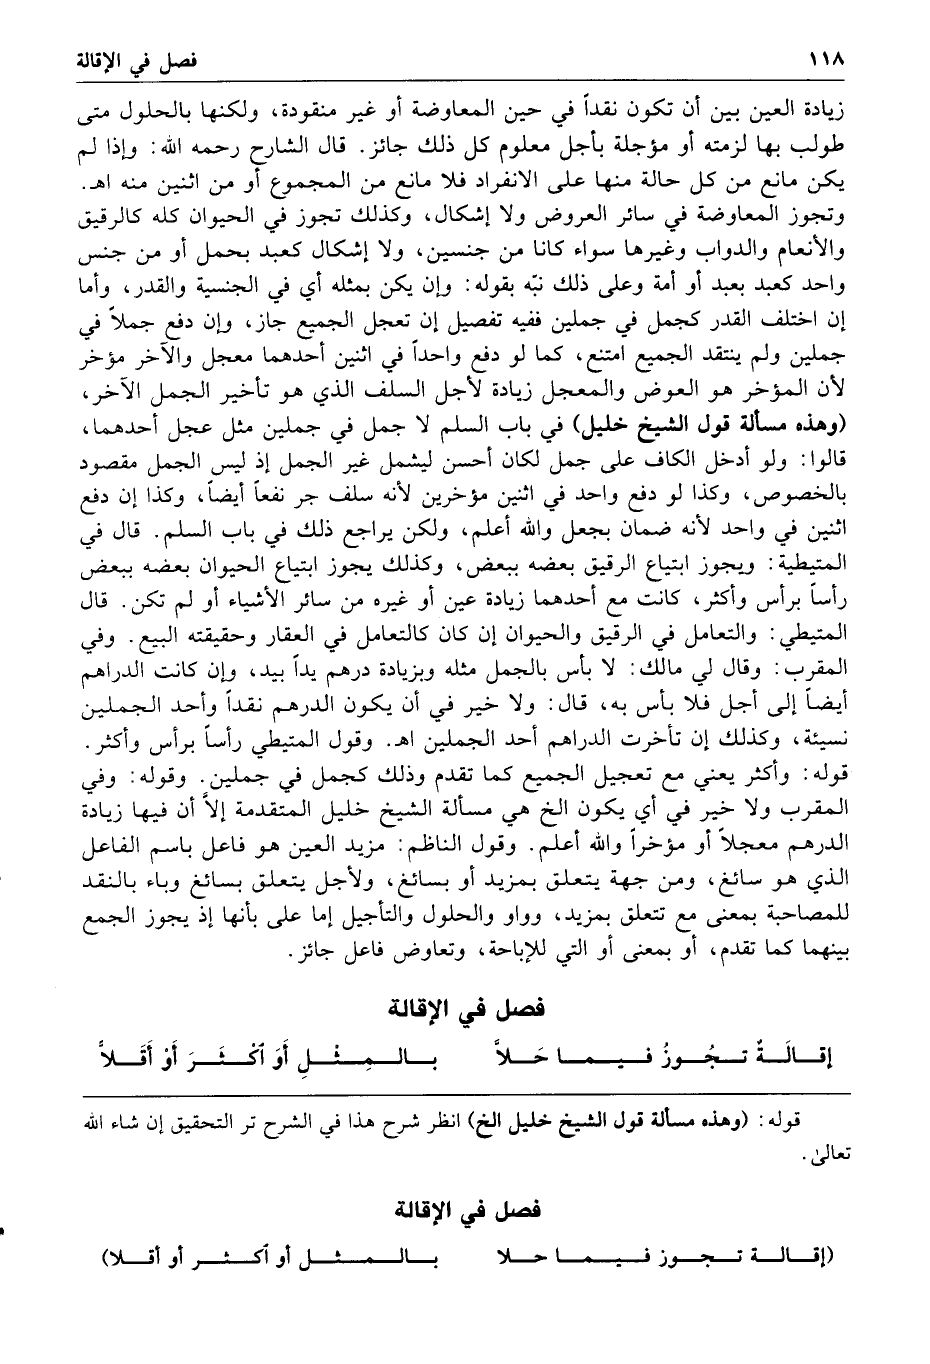 ١١٨
فصل في الإقالة
زيادة العين بين أن تكون نقداً في حين المعاوضة أو غير منقودة، ولكنها بالحلول متى
طولب بها لزمته أو مؤجلة بأجل معلوم كل ذلك جائز. قال الشارح رحمه الله: وإذا لم
يكن مانع من كل حالة منها على الانفراد فلا مانع من المجموع أو من اثنين منه اهـ.
وتجوز المعاوضة في سائر العروض ولا إشكال، وكذلك تجوز في الحيوان كله كالرقيق
والأنعام والدواب وغيرها سواء كانا من جنسين، ولا إشكال كعبد بحمل أو من جنس
واحد كعبد بعبد أو أمة وعلى ذلك نبّه بقوله: وإن يكن بمثله أي في الجنسية والقدر، وأما
إن اختلف القدر كجمل في جملين ففيه تفصيل إن تعجل الجميع جاز، وإن دفع جملاً في
جملين ولم ينتقد الجميع امتنع، كما لو دفع واحداً في اثنين أحدهما معجل والآخر مؤخر
لأن المؤخر هو العوض والمعجل زيادة لأجل السلف الذي هو تأخير الجمل الآخر،
(وهذه مسألة قول الشيخ خليل) في باب السلم لا جمل في جملين مثل عجل أحدهما،
قالوا: ولو أدخل الكاف على جمل لكان أحسن ليشمل غير الجمل إذ ليس الجمل مقصود
بالخصوص، وكذا لو دفع واحد في اثنين مؤخرين لأنه سلف جر نفعاً أيضاً، وكذا إن دفع
اثنين في واحد لأنه ضمان بجعل والله أعلم، ولكن يراجع ذلك في باب السلم. قال في
المتيطية: ويجوز ابتياع الرقيق بعضه ببعض، وكذلك يجوز ابتياع الحيوان بعضه ببعض
رأساً برأس وأكثر، كانت مع أحدهما زيادة عين أو غيره من سائر الأشياء أو لم تكن. قال
المتيطي: والتعامل في الرقيق والحيوان إن كان كالتعامل في العقار وحقيقته البيع. وفي
المقرب: وقال لي مالك: لا بأس بالجمل مثله وبزيادة درهم يداً بيد، وإن كانت الدراهم
أيضاً إلى أجل فلا بأس به، قال: ولا خير في أن يكون الدرهم نقداً وأحد الجملين
نسيئة، وكذلك إن تأخرت الدراهم أحد الجملين اهـ. وقول المتيطي رأساً برأس وأكثر.
قوله: وأكثر يعني مع تعجيل الجميع كما تقدم وذلك كجمل في جملين. وقوله: وفي
المقرب ولا خير في أي يكون الخ هي مسألة الشيخ خليل المتقدمة إلاَّ أن فيها زيادة
الدرهم معجلاً أو مؤخراً والله أعلم. وقول الناظم: مزيد العين هو فاعل باسم الفاعل
الذي هو سائغ، ومن جهة يتعلق بمزيد أو بسائغ، ولأجل يتعلق بسائغ وباء بالنقد
للمصاحبة بمعنى مع تتعلق بمزيد، وواو والحلول والتأجيل إما على بأنها إذ يجوز الجمع
بينهما كما تقدم، أو بمعنى أو التي للإباحة، وتعاوض فاعل جائز.
فصل في الإقالة
إقـالَـةٌ تـجُـوزُ فـيـمـا حَـلاَّ بـالـمِـثْـلِ أوَ ٱكْـثَـرَ أَوْ أقَـلاَّ
قوله: (وهذه مسألة قول الشيخ خليل الخ) انظر شرح هذا في الشرح تر التحقيق إن شاء الله
تعالىٰ.
فصل في الإقالة
(إقـالـة تـجـوز فـيـمـا حـلا بـالـمـثـل أو ٱكـثـر أو أقـلا)